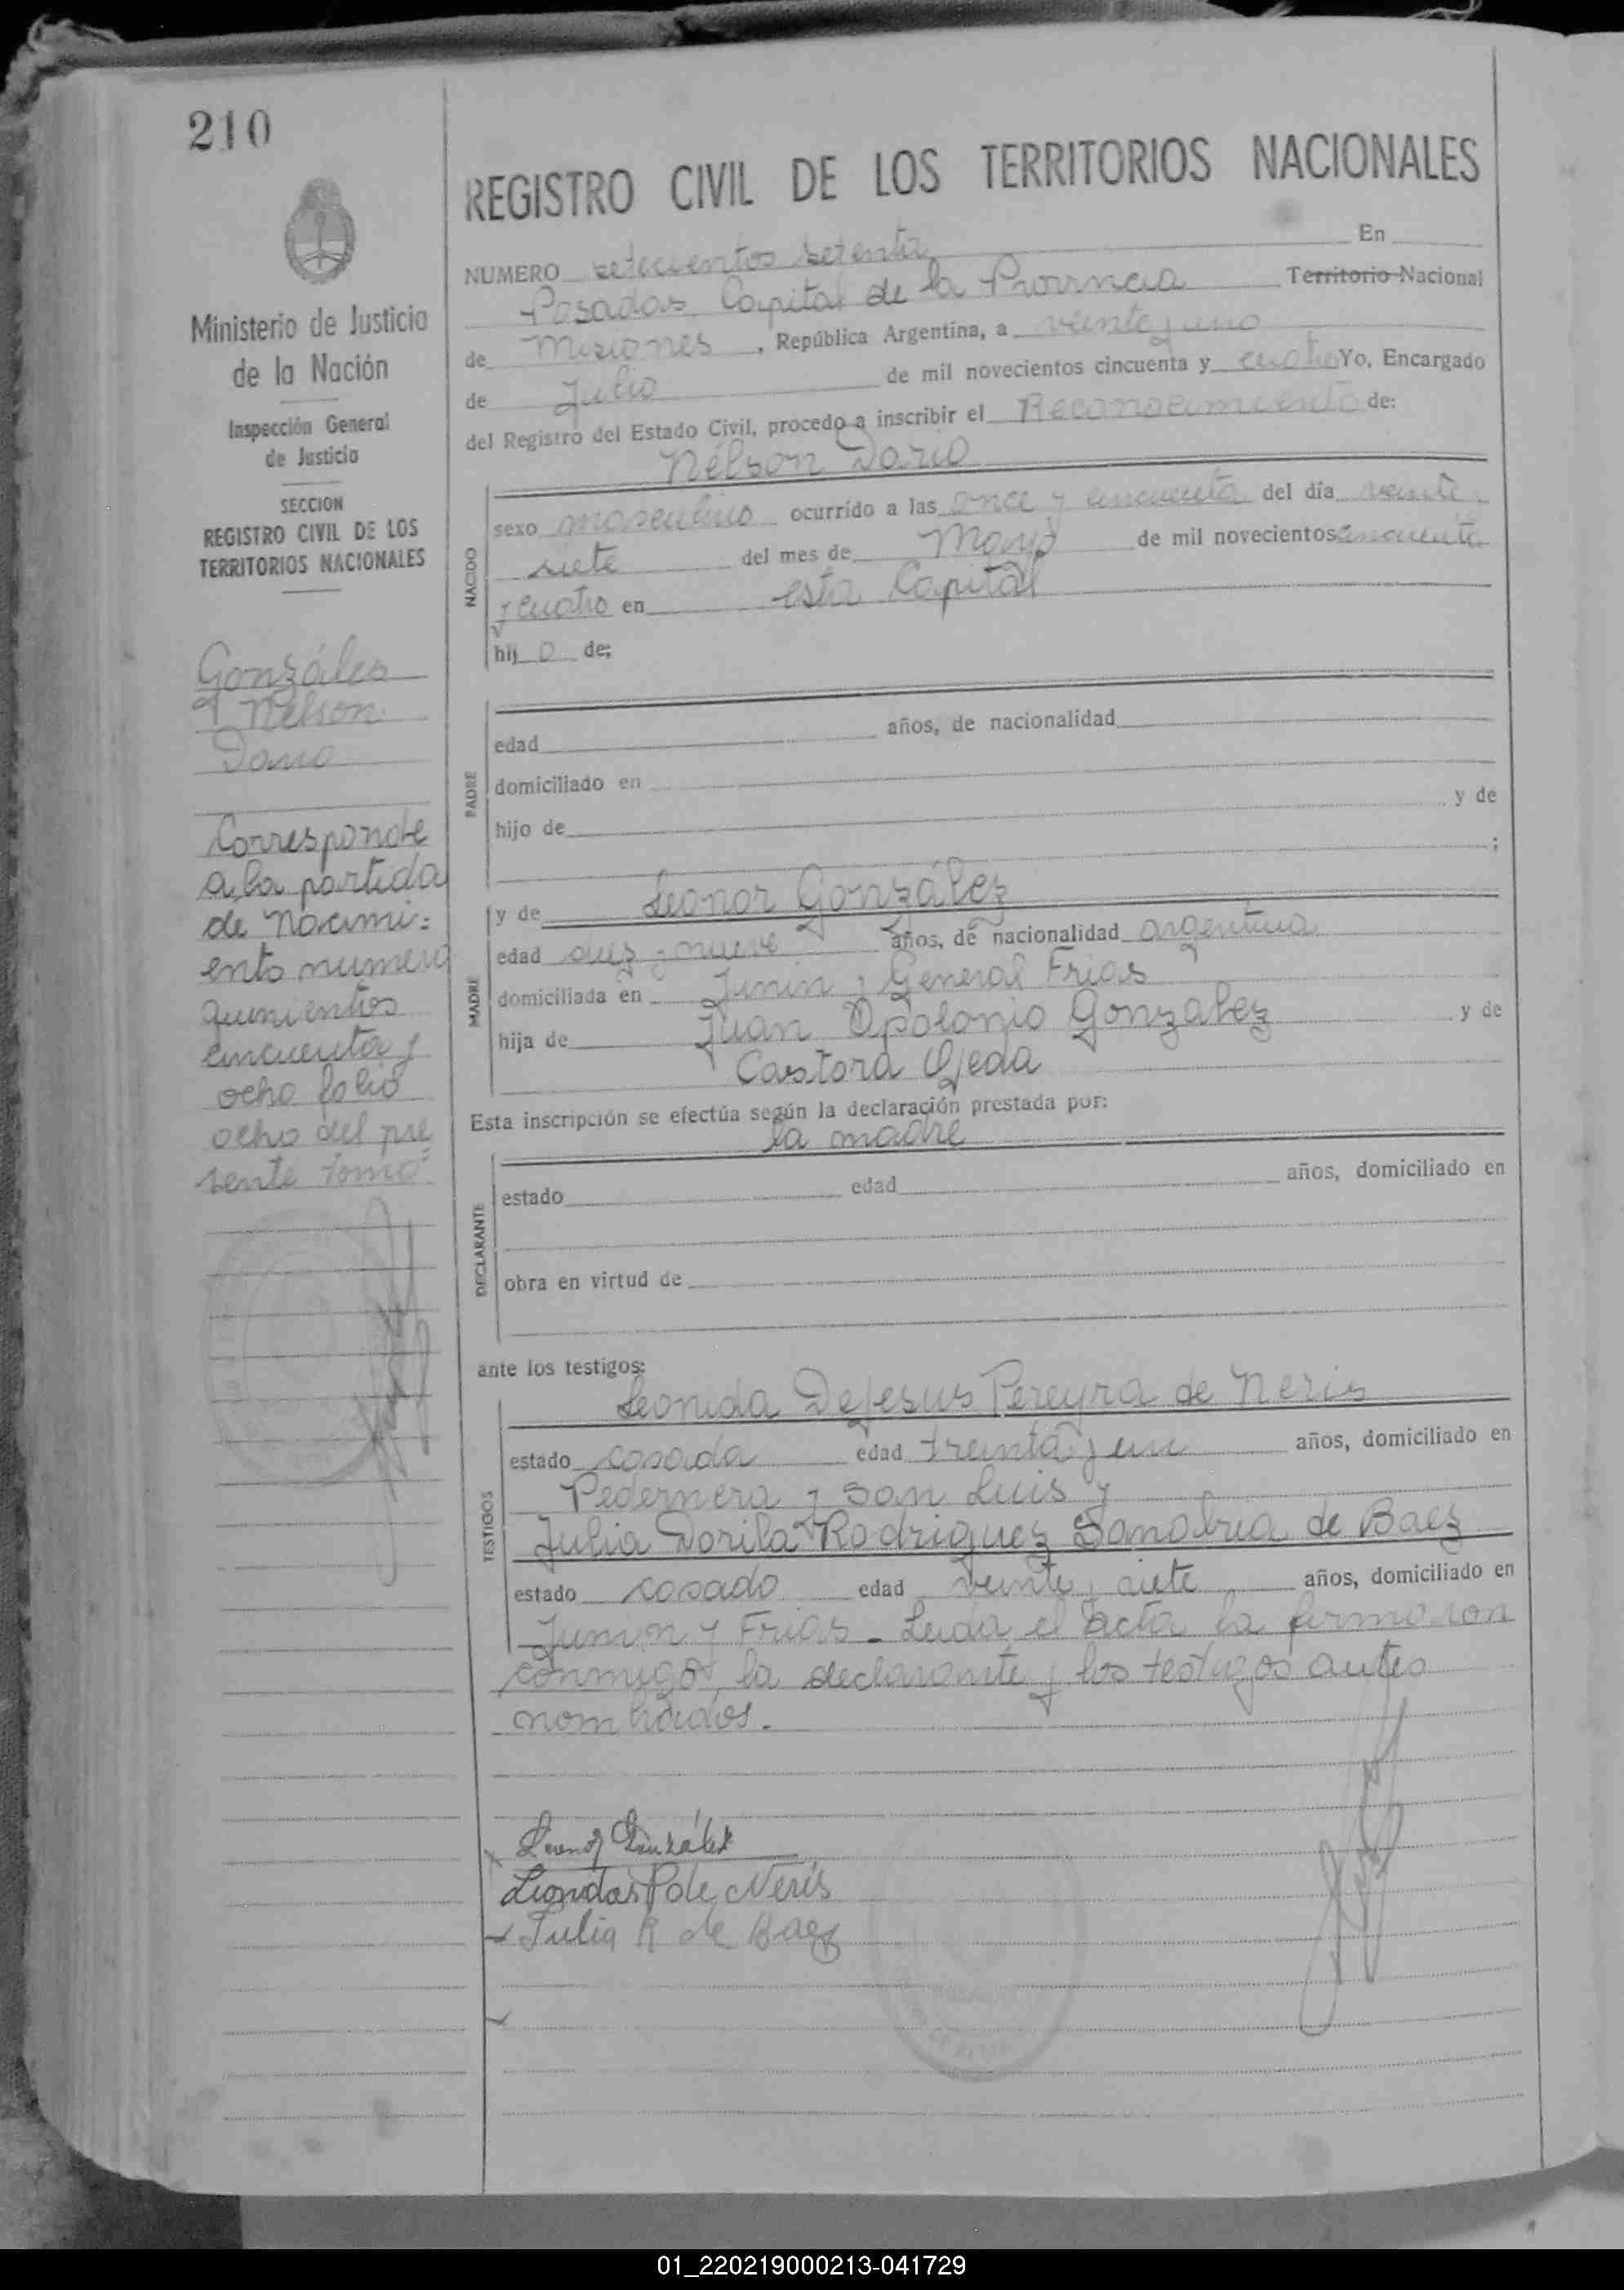 210
Ministerio de Justicia
de la Nación
Inspección General
de Justicia
SECCION
REGISTRO CIVIL DE LOS
TERRITORIOS NACIONALES
Gonzáles
Nélson
Dario
Corresponde
a la partida
de Nacimi=
ento numero
quinientos
cincuenta y
ocho folio
ocho del pre
sente tomo
REGISTRO CIVIL DE LOS TERRITORIOS NACIONALES
NUMERO setecientos setenta En
Posadas, Capital de la Provincia Territorio Nacional
de Misiones, República Argentina, a veinte y uno
de Julio de mil novecientos cincuenta y cuatro Yo, Encargado
del Registro del Estado Civil, procedo a inscribir el Reconocimiento de:
Nélson Dario
NACIDO
sexo masculino ocurrido a las once y cincuenta del día veinte
siete del mes de Mayo de mil novecientos cincuenta
y cuatro en esta Capital
hijo de;
PADRE
edad años, de nacionalidad
domiciliado en
hijo de y de
;
MADRE
y de Leonor González
edad diez y nueve años, de nacionalidad argentina
domiciliada en Junin y General Frias
hija de Juan Apolonio Gonzalez y de
Castora Ojeda
Esta inscripción se efectúa según la declaración prestada por:
la madre
DECLARANTE
estado edad años, domiciliado en
obra en virtud de
ante los testigos:
TESTIGOS
Leonida DeJesus Pereyra de Neris
estado casada edad treinta y un años, domiciliado en
Pedernera y San Luis y
Julia Dorila Rodriguez Sanabria de Baez
estado casado edad veinte y siete años, domiciliado en
Junin y Frias - Leida el acta la firmaron
conmigo, la declarante y los testigos antes
nombrados.
Leonor González
Leonidas P de Neris
Julia R de Baez
01_220219000213-041729